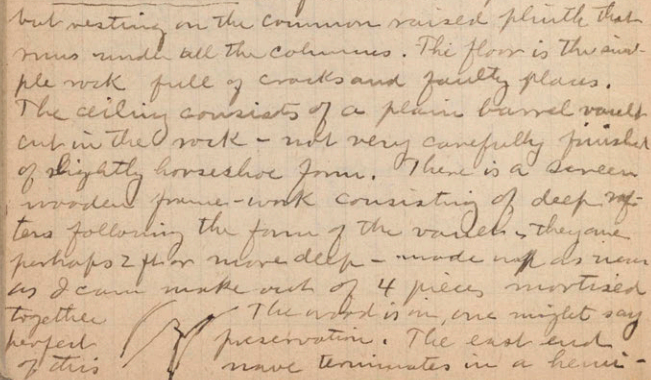 but resting on the common raised plinth that
runs under all the columns. The floor is the sim-
ple rock full of cracks and faulty places.
The ceiling consists of a plain barrel vault
cut in the rock - not very carefully finished
of slightly horseshoe form. There is a screen
wooden frame-work consisting of deep raf-
ters following the form of the vault, they are
perhaps 2 ft or more deep - made up as near
as I can make out of 4 pieces mortised
together The wood is in, one might say
perfect preservation. The east end
of this nave terminates in a hemi-